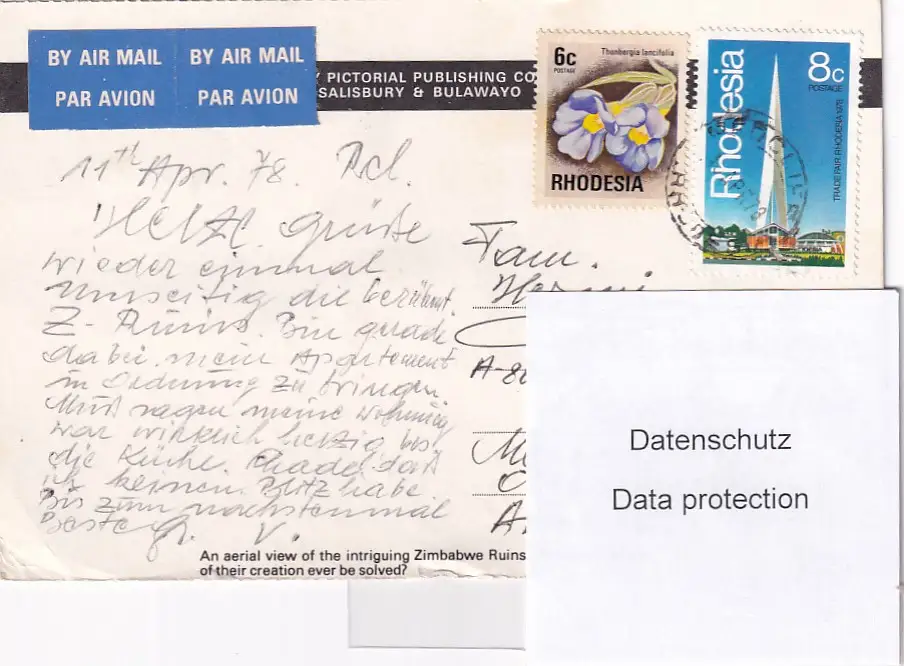 BY AIR MAIL
PAR AVION
BY AIR MAIL
PAR AVION
PICTORIAL PUBLISHING CO
SALISBURY & BULAWAYO
6c
POSTAGE
Thunbergia lancifolia
RHODESIA
Rhodesia
8c
POSTAGE
TRADE FAIR RHODESIA 1978
11th Apr. 78.
Herzl. Grüße
wieder einmal.
Umseitig die berühmt.
Z-Ruins. Bin gerade
dabei mein Apartement
in Ordnung zu bringen.
Muß sagen meine Wohnung
war wirklich herzig bis
die Küche. Schade, daß
ich keinen Platz habe.
Bis zum nächstenmal
Beste Gr. V.
Fam.
A-80
An aerial view of the intriguing Zimbabwe Ruins
of their creation ever be solved?
Datenschutz
Data protection